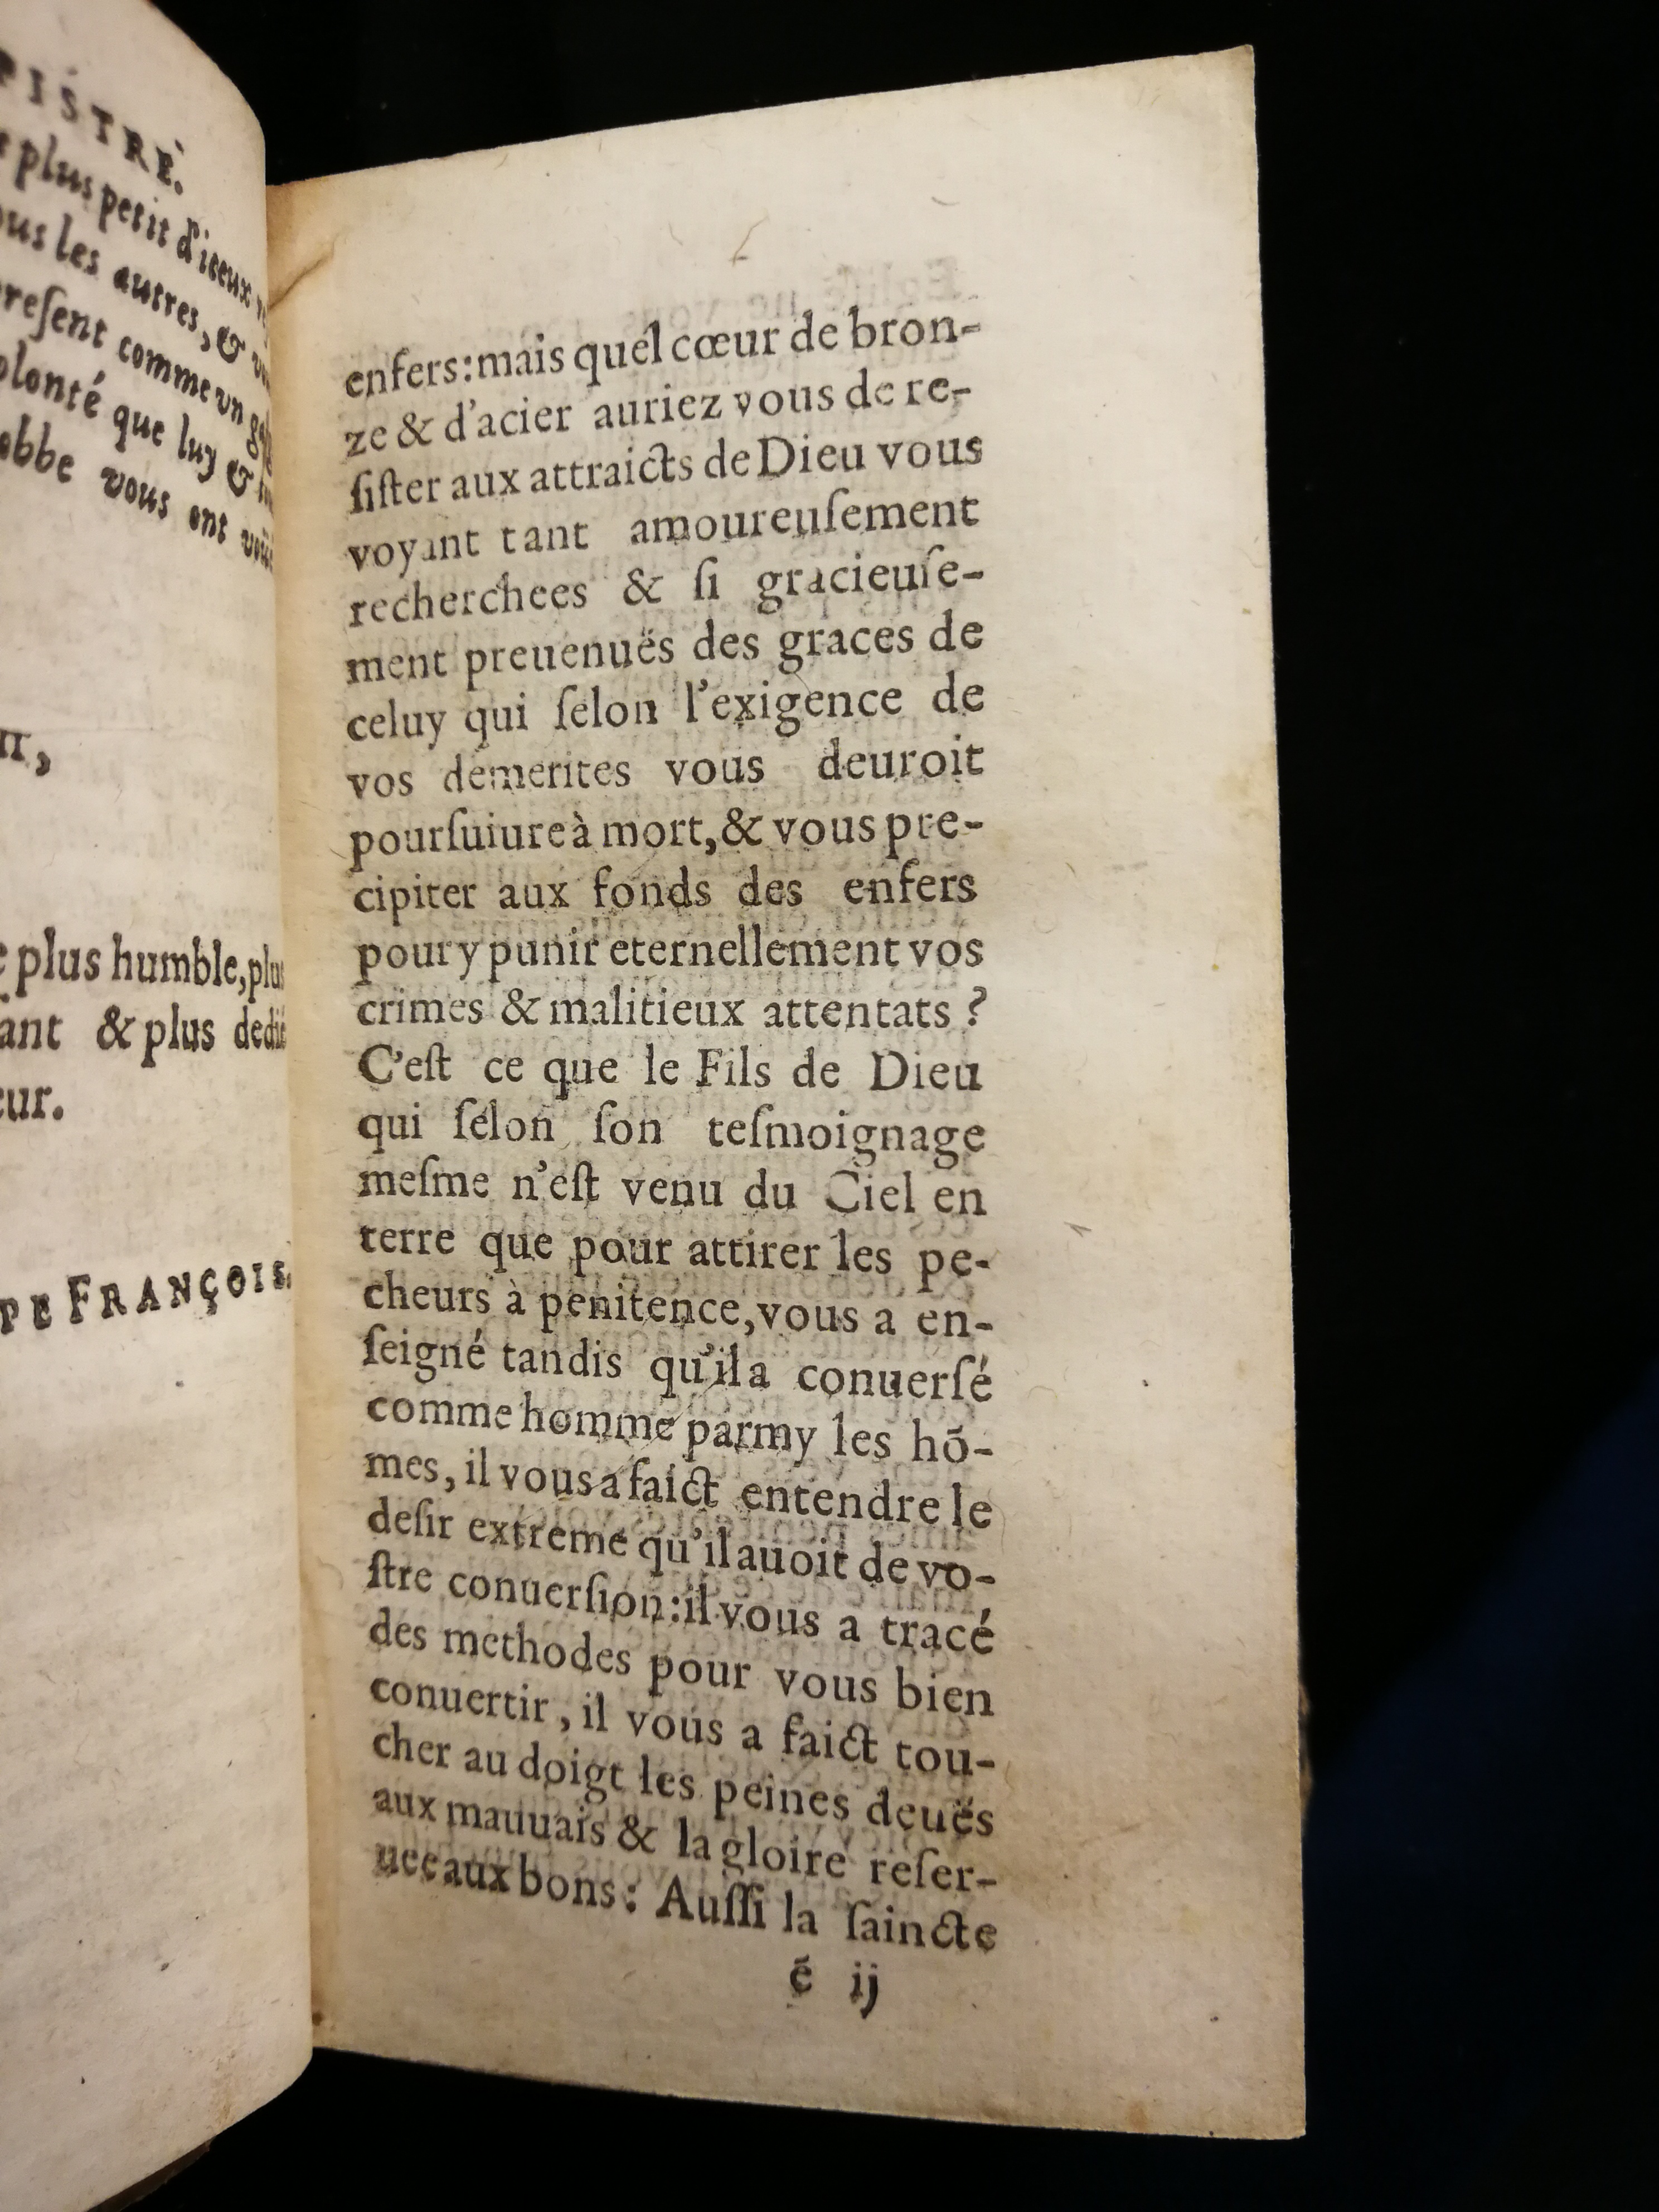 PISTRE.
plus petit d'iceux
les autres, &
comme vn
que luy &
vous ont
plus humble, plus
& plus dedié
DE FRANÇOIS.
enfers: mais quel cœur de bron-
ze & d'acier auriez vous de re-
ſiſter aux attraicts de Dieu vous
voyant tant amoureuſement
recherchees & ſi gracieuſe-
ment preuenuës des graces de
celuy qui ſelon l'exigence de
vos demerites vous deuroit
pourſuiure à mort, & vous pre-
cipiter aux fonds des enfers
pour y punir eternellement vos
crimes & malitieux attentats ?
C'eſt ce que le Fils de Dieu
qui ſelon ſon teſmoignage
meſme n'eſt venu du Ciel en
terre que pour attirer les pe-
cheurs à penitence, vous a en-
ſeigné tandis qu'il a conuerſé
comme homme parmy les hõ-
mes, il vous a faict entendre le
deſir extreme qu'il auoit de vo-
ſtre conuerſion: il vous a tracé
des methodes pour vous bien
conuertir, il vous a faict tou-
cher au doigt les peines deuës
aux mauuais & la gloire reſer-
uee aux bons: Auſſi la ſaincte
é ij